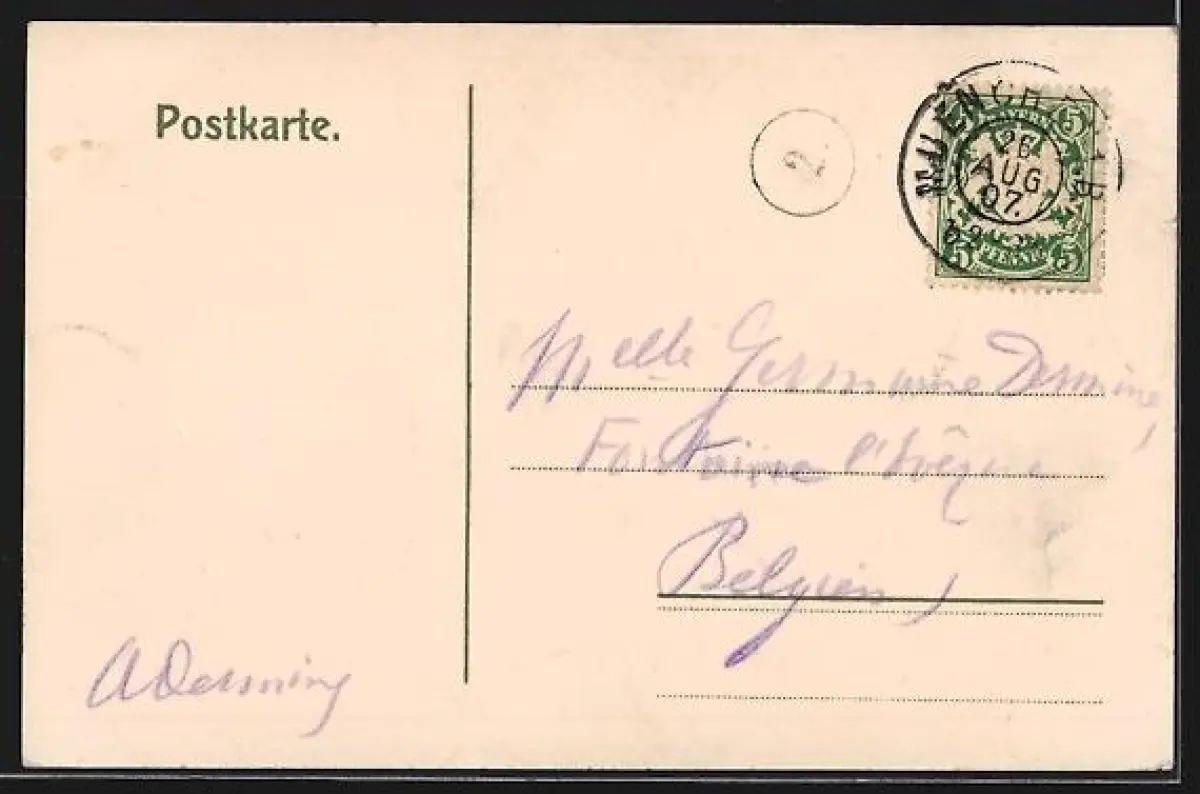 Postkarte.
2.
MUENCHEN
26
AUG
07.
BAYERN
5
5 PFENNIG 5
Melle Germaine Dermine,
Fontaine l'Évêque
Belgien
A Dermine